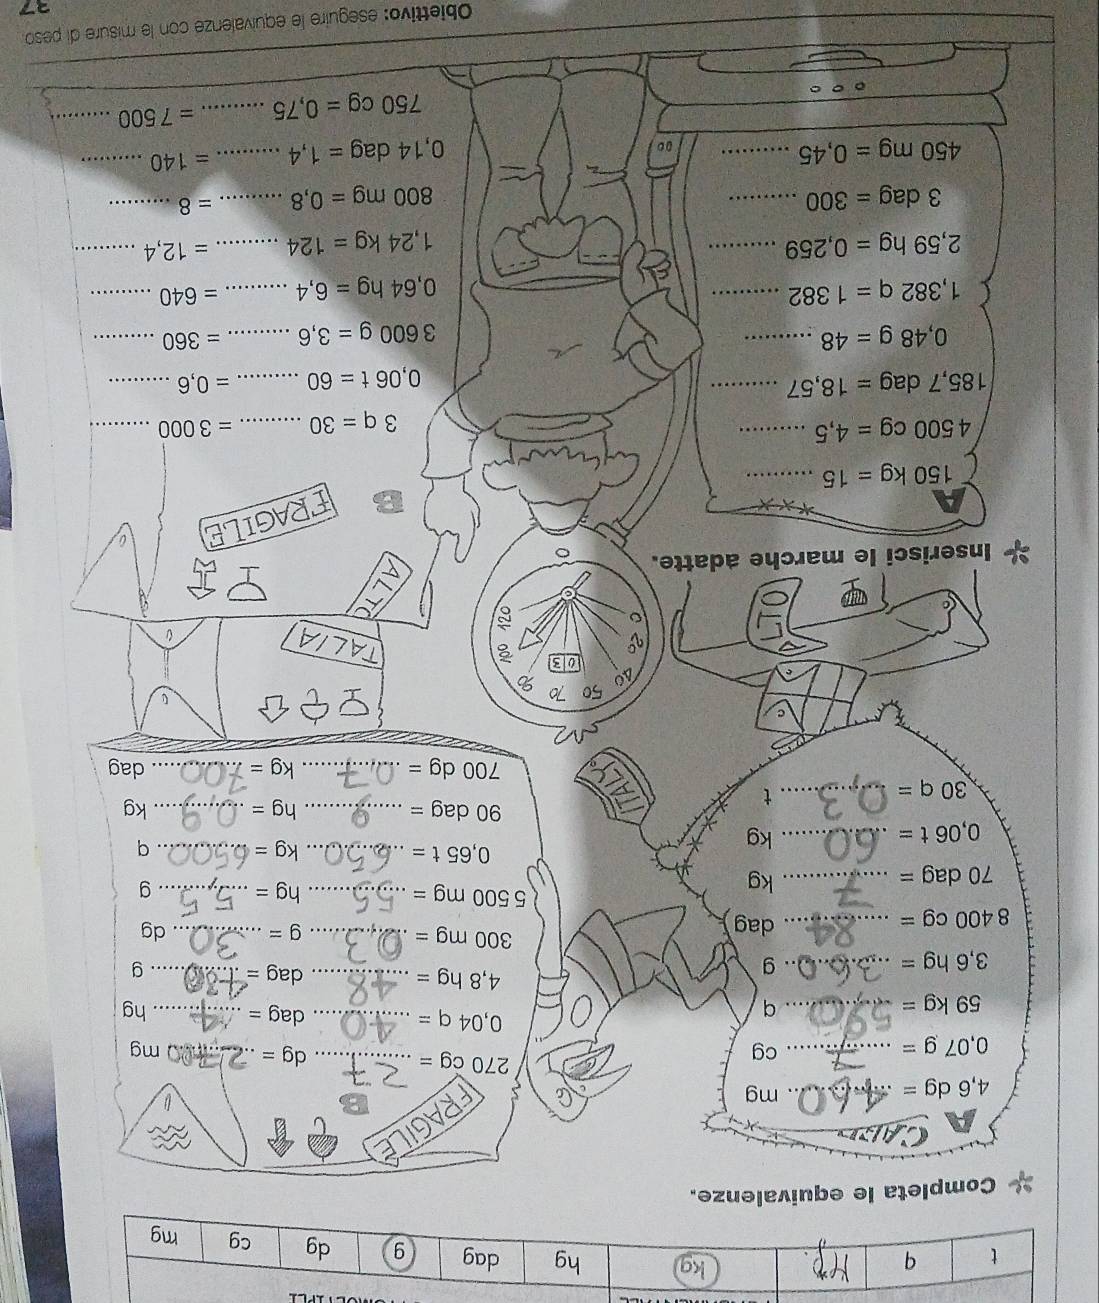 t q Mg kg hg dag g dg cg mg
Completa le equivalenze.
A
4,6 dg = 460 mg
0,07 g = 7 cg
59 kg = 590 q
3,6 hg = 360 g
8 400 cg = 84 dag
70 dag = 7 kg
0,06 t = 60 kg
30 q = 0,3 t
ITALY
FRAGILE
B
270 cg = 27 dg = 2,700 mg
0,04 q = 40 dag = 4 hg
4,8 hg = 48 dag = 480 g
300 mg = 0,3 g = 30 dg
5 500 mg = 55 hg = 5,5 g
0,65 t = 650 kg = 6500 q
90 dag = 9 hg = 0,9 kg
700 dg = 0,7 kg = 700 dag
0 20 40 50 70 90 100 120
0 3
TALIA
ALTO
FRAGILE
Inserisci le marche adatte.
A
150 kg = 15 ...........
4 500 cg = 4,5 ...........
185,7 dag = 18,57 ...........
0,48 g = 48 ...........
1,382 q = 1 382 ...........
2,59 hg = 0,259 ...........
3 dag = 300 ...........
450 mg = 0,45 ...........
B
3 q = 30 ........... = 3 000 ...........
0,06 t = 60 ........... = 0,6 ...........
3 600 g = 3,6 ........... = 360 ...........
0,64 hg = 6,4 ........... = 640 ...........
1,24 kg = 124 ........... = 12,4 ...........
800 mg = 0,8 ........... = 8 ...........
0,14 dag = 1,4 ........... = 140 ...........
750 cg = 0,75 ........... = 7 500 ...........
Obiettivo: eseguire le equivalenze con le misure di peso.
37